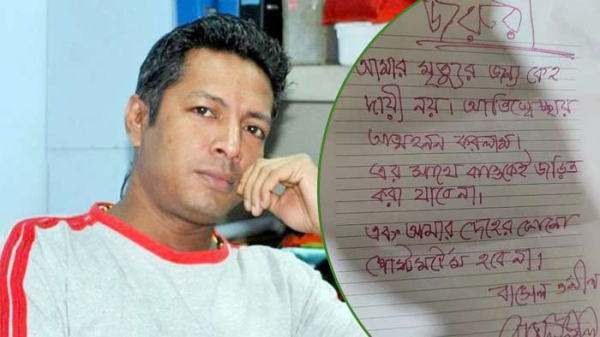 জরুরী
আমার মৃত্যুর জন্য কেহ
দায়ী নয়। আমি স্বেচ্ছায়
আত্মহনন করলাম।
এর সাথে কাউকেই জড়িত
করা যাবে না।
এবং আমার দেহের কোনো
পোস্টমর্টেম হবে না।